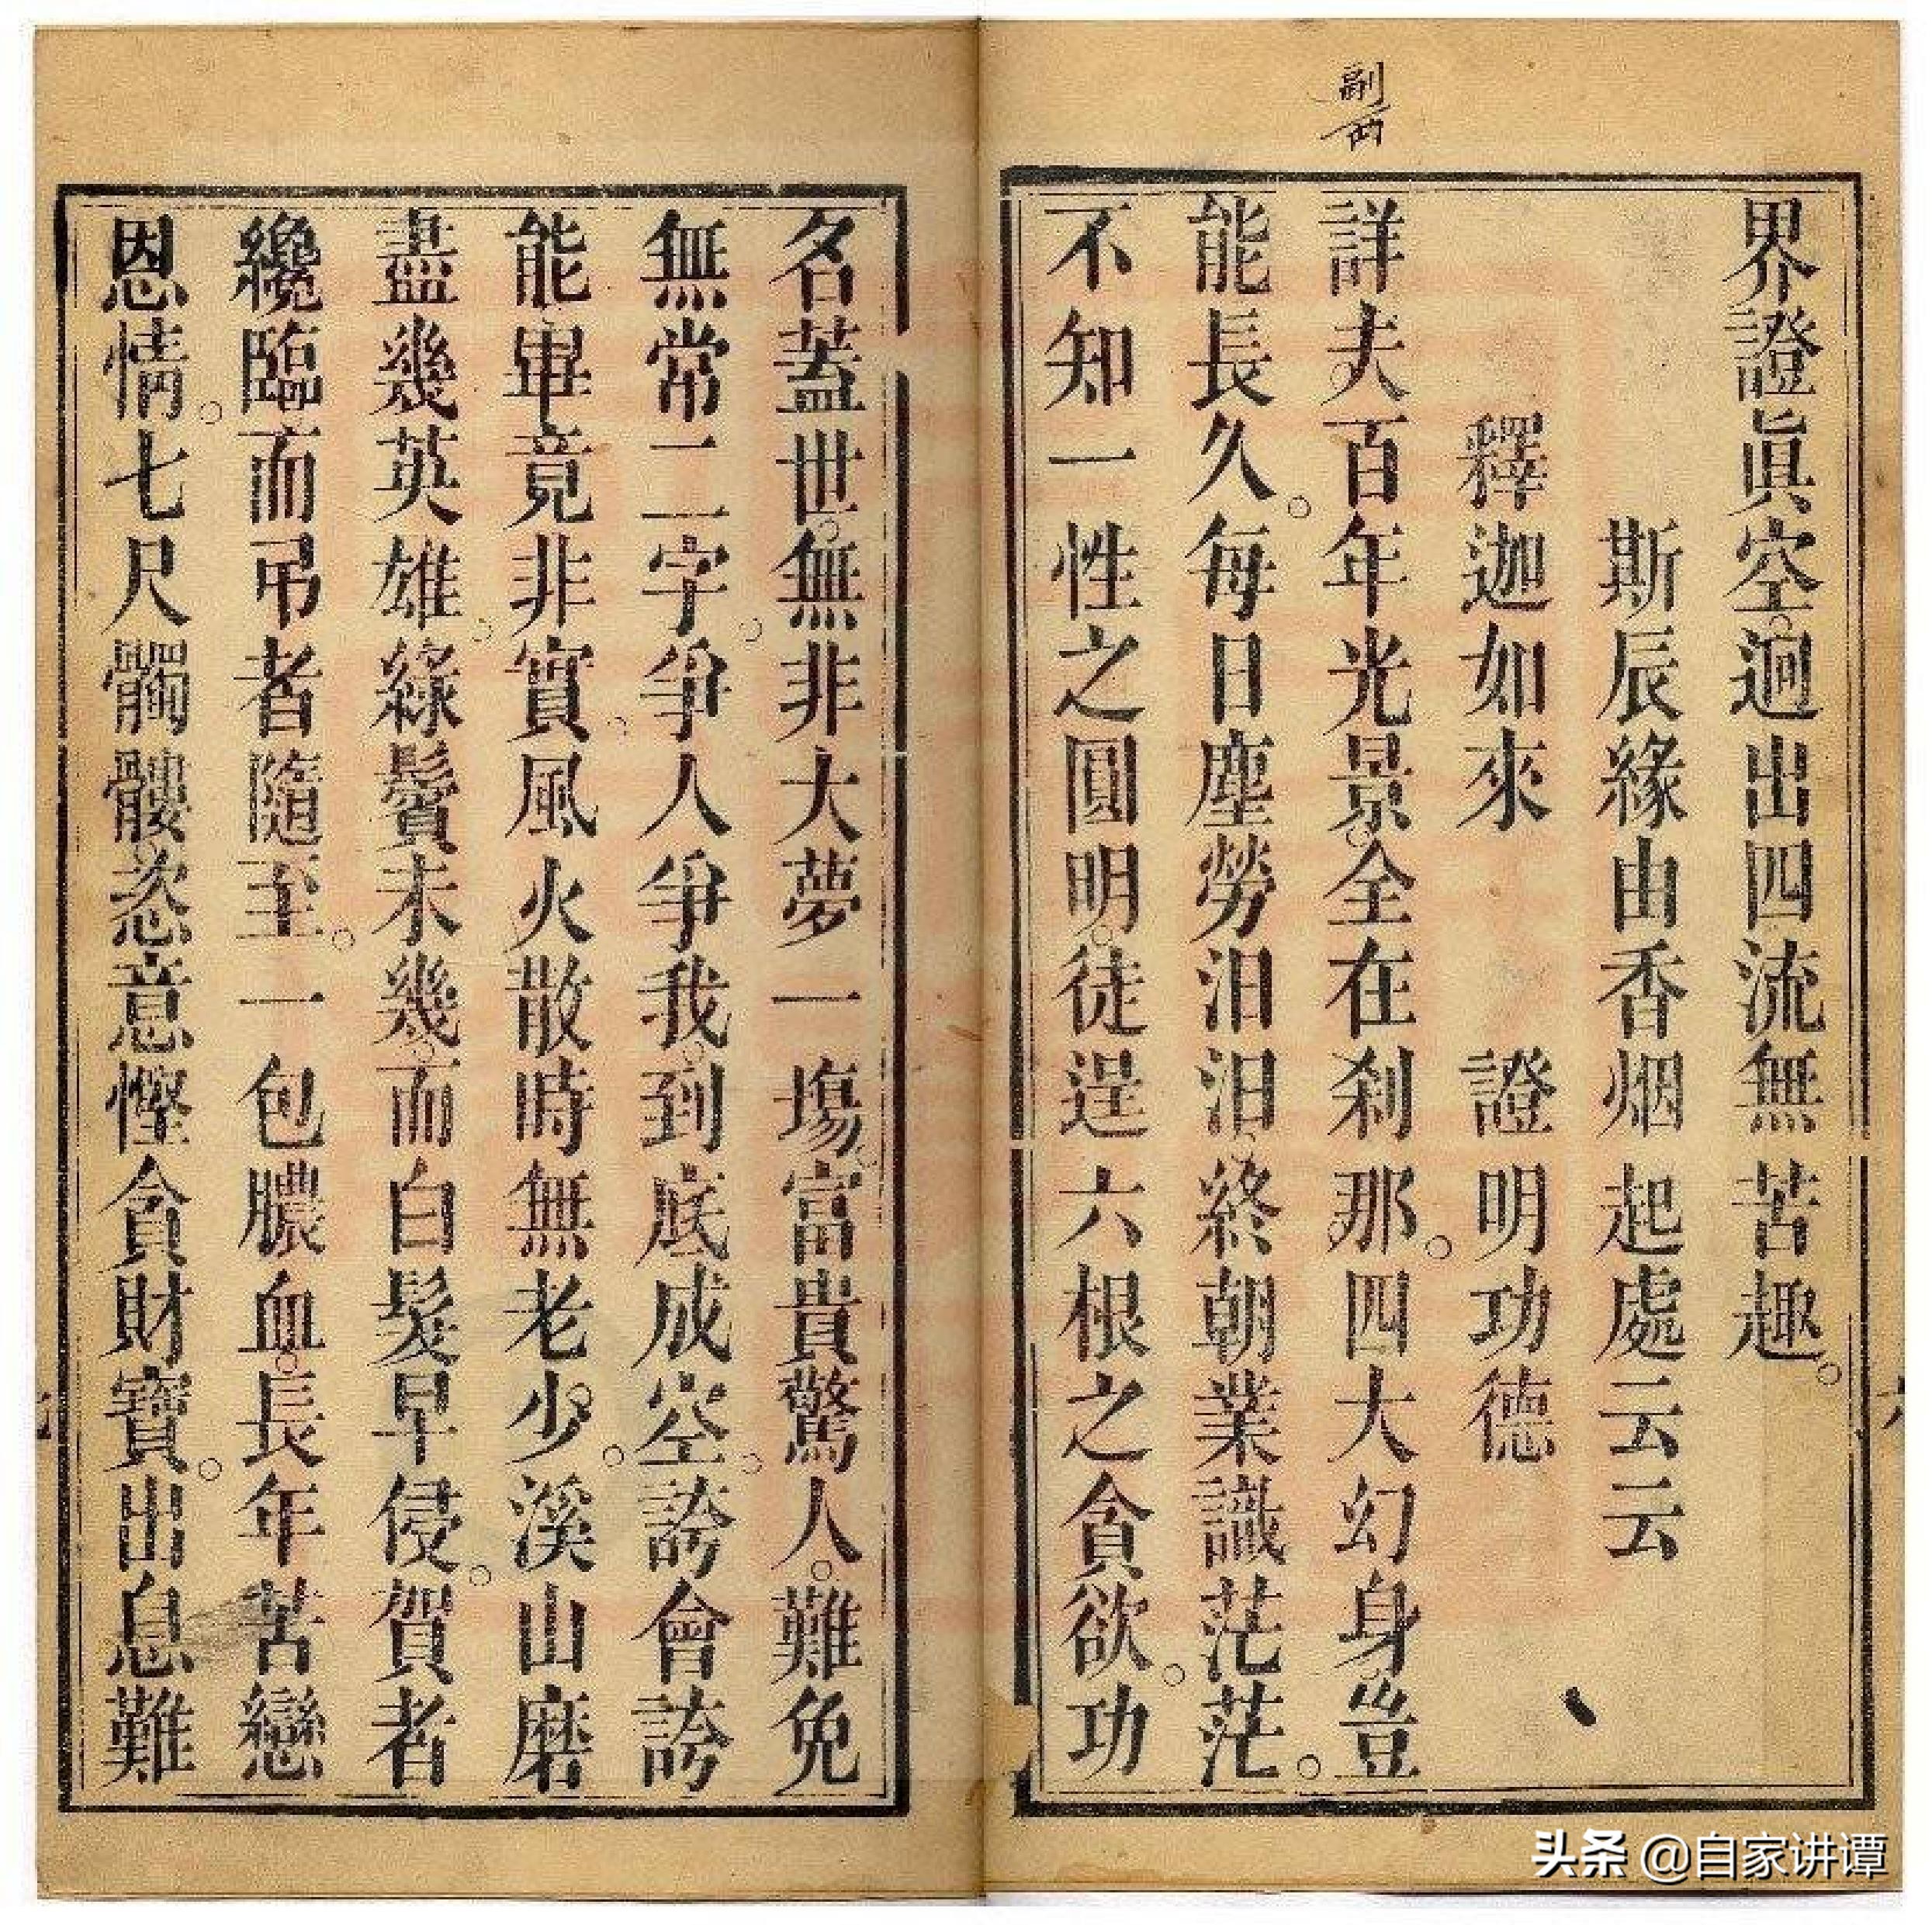 界證眞空。迥出四流無苦趣。
斯辰緣由香烟起處云云
釋迦如來 證明功德
詳夫百年光景。全在刹那。四大幻身豈
能長久。每日塵勞汩汩。終朝業識茫茫。
不知一性之圓明。徒逞六根之貪欲。功
名蓋世。無非大夢一塲。富貴驚人。難免
無常二字。爭人爭我。到底成空。誇會誇
能畢竟非實。風火散時無老少。溪山磨
盡幾英雄。綠鬢未幾。而白髮早侵。賀者
纔臨而吊者隨至。一包膿血。長年苦戀
恩情。七尺髑髏恣意慳貪財寶。出息難
头条 @自家讲谭